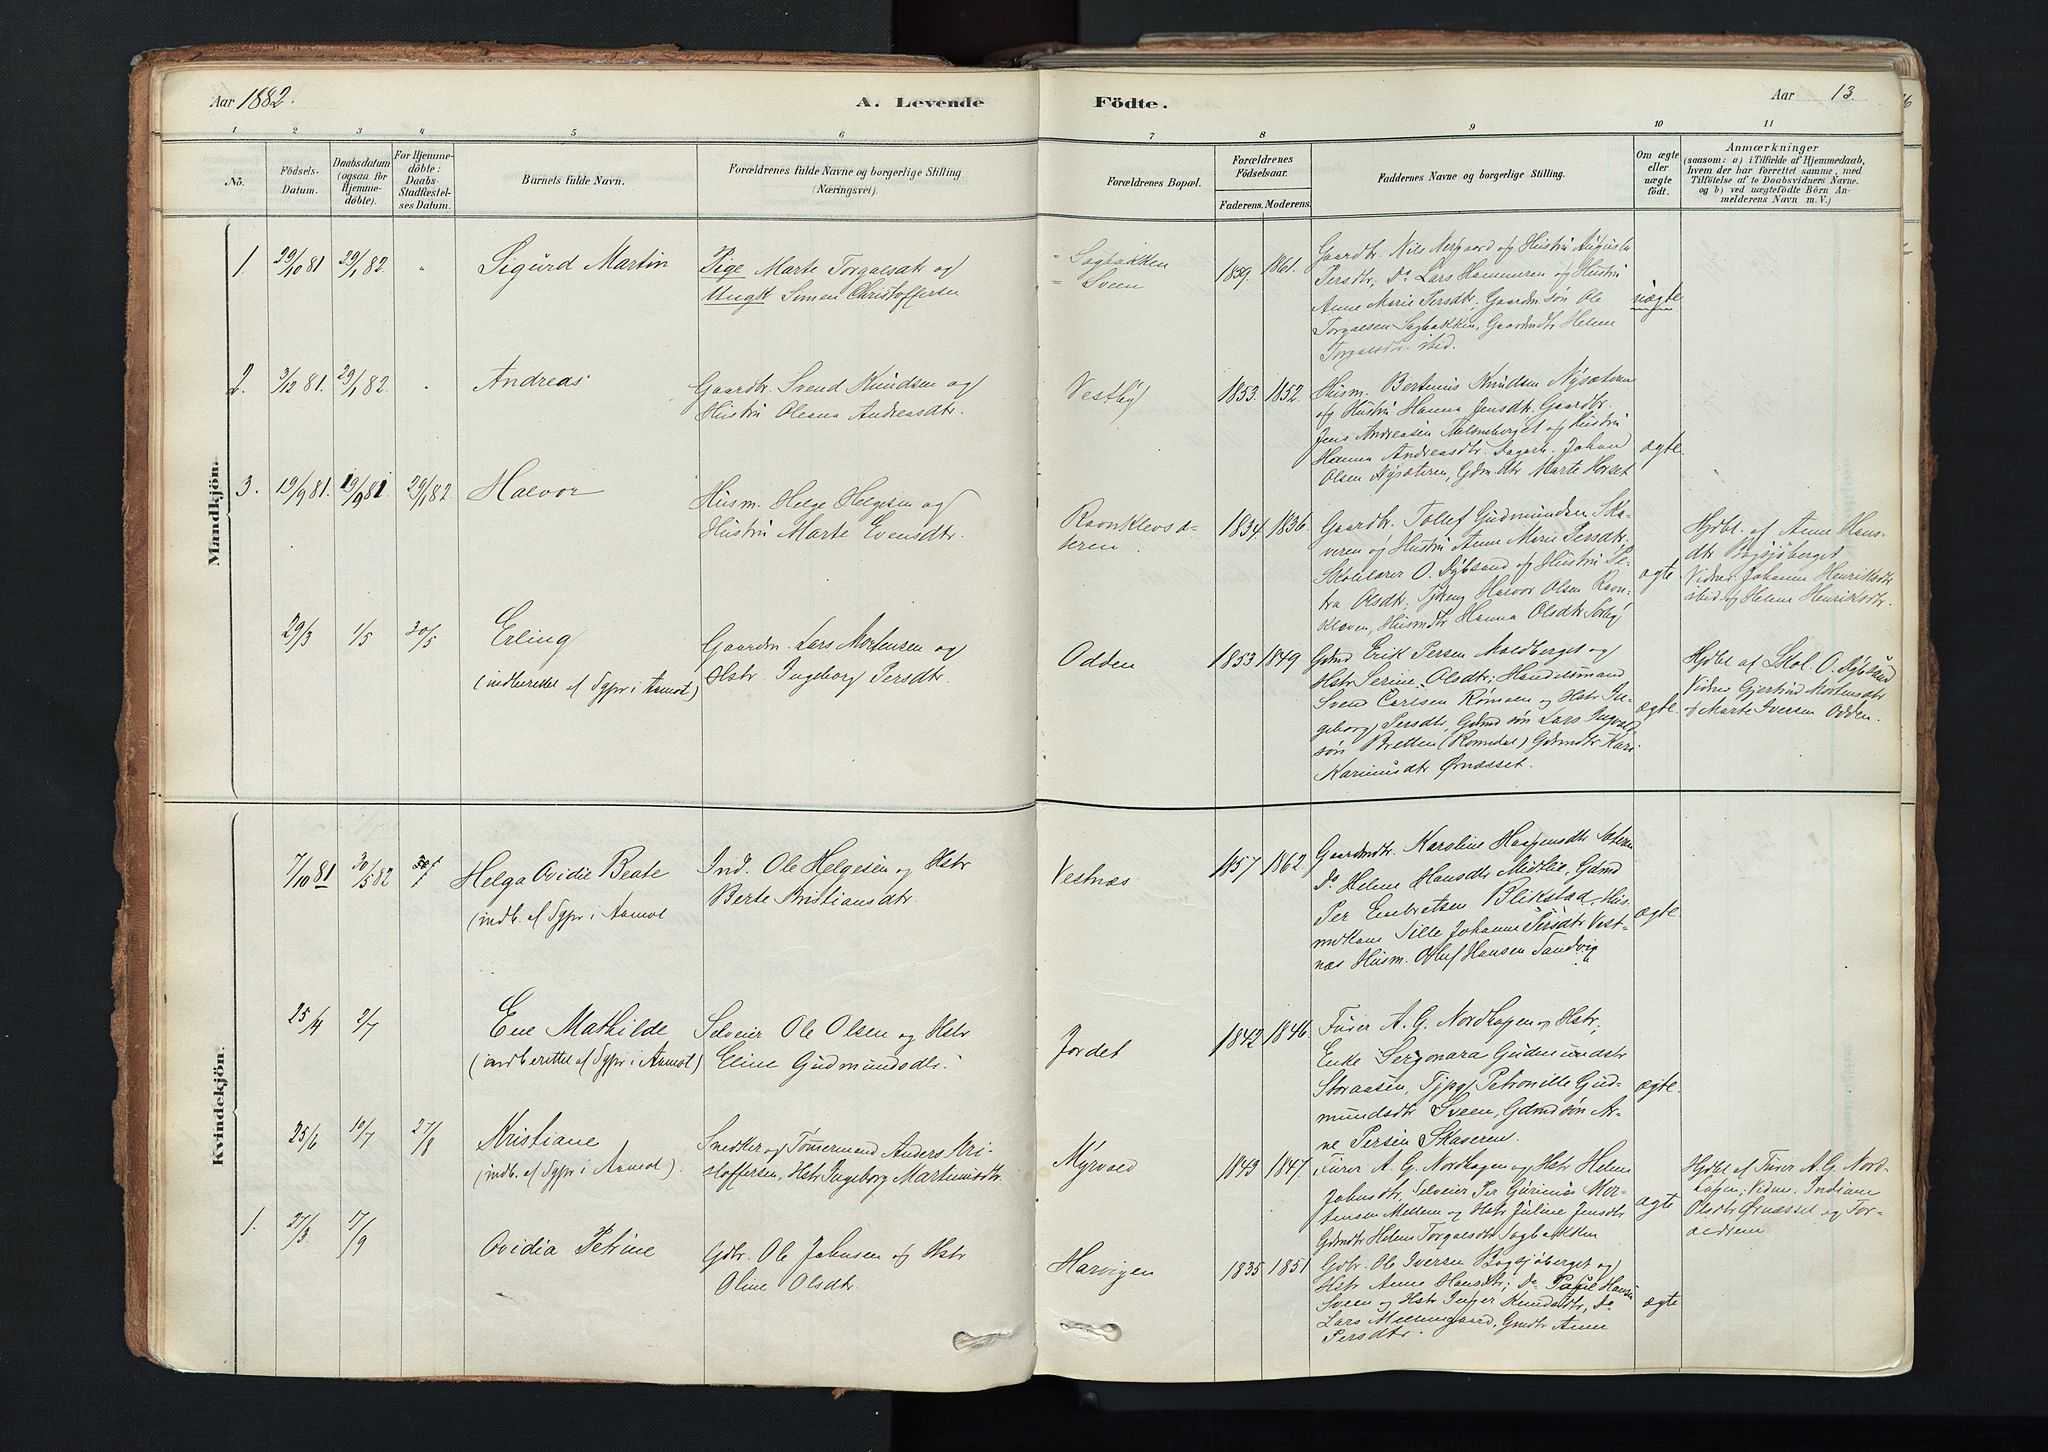 Aar 1882.
A. Levende
Födte.
Aar 13.
1 2 3 4 5 6 7 8 9 10 11
No.
Födsels-
Datum.
Daabsdatum
(ogsaa for
Hjemme-
döbte).
For Hjemme-
döbte:
Daabs-
Stadfæstel-
ses Datum.
Barnets fulde Navn.
Forældrenes fulde Navne og borgerlige Stilling
(Næringsvei).
Forældrenes Bopæl.
Forældrenes
Födselsaar.
Faderens. Moderens.
Faddernes Navne og borgerlige Stilling.
Om ægte
eller
uægte
födt.
Anmærkninger
(saasom: a) i Tilfælde af Hjemmedaab,
hvem der har forrettet samme, med
Tilföielse af to Daabsvidners Navne,
og b) ved uægtefödte Börn An-
melderens Navn m. V.)
Mandkjön.
1. 29/10 81 29/1 82. " Sigurd Martin
Pige Marte Torgalsdtr og
Ungk Simen Christoffersen
" Sagbakken
" Sveen
1859. 1861.
Gaardbr. Nils Nergaard og Hustru Augusta
Persdtr; Do Lars Hammeren og Hustru
Anne Marie Persdtr. Gaardm søn Ole
Torgalsen Sagbakken, Gaardmdtr Helene
Torgalsdtr. ibid.
uægte
2. 3/12 81. 29/1 82. " Andreas
Gaardbr. Svend Knudsen og
Hustru Oleana Andreasdtr.
Vestby
1853. 1852.
Husm. Bertinius Knudsen Nysæteren
og Hustru Hanna Jensdtr. Gaardbr.
Jens Andreasen Melsneberget og Hustru
Hanna Andreasdtr. Dagarb. Johan
Olsen Nysæteren, Gdmdtr Marte Horset
ægte.
3. 19/9 81. 19/9 81 29/1 82. Halvor
Husm. Helge Helgesen og
Hustru Marte Evensdtr.
Ravnklevsæ-
teren.
1834 1836.
Gaardbr. Tollef Gudmundsen Ska-
veren og Hustru Anne Marie Persdtr.
Skolelærer O. Dybsand og Hustru Pe-
tra Olsdtr; Tjkeng Halvor Olsen Ravn-
kleven, Husmdtr Hanna Olsdtr Sørby
ægte
Hjdbt. af Anne Hans-
dtr Bogsjøberget
Vidner Johanne Henriksdtr
ibid og Helene Henriksdtr.
29/3 1/5 30/5 Erling
(indberettet af Sgpr i Aamot)
Gaardm. Lars Mortensen og
Hstr. Ingeborg Persdtr.
Odden
1853 1849
Gdmd Erik Persen Moldberget og
Hstr Serine Olsdtr; Handelsmand
Svend Carlsen Rømoen og Hstr In-
geborg Persdtr, Gdmd søn Lars Ingvald-
søn Bretten (Romdal) Gdmdtr Kari
Karinusdtr Ørnæsset.
ægte.
Hjdbt af Skol. O. Dybsand
Vidner Gjertrud Mortensdtr
og Marte Iversen Odden.
Kvindekjön.
7/10 81 30/5 82 Helga Ovidie Beate
(indb. af Sgpr i Aamot
Ind. Ole Helgesen og Hstr
Berte Kristiansdtr.
Vestnæs
1857 1862
Gaardmdtr. Karoline Haagensdtr Sæteren
Do Helene Hansdtr Midtlie, Gdmd
Per Embretsen Blikstad, Hus-
mdkone Sille Johanne Persdtr Vest-
næs Husm. Oluf Hansen Sandvig
ægte.
25/4 2/7 Ene Mathilde
(indberettet af Sgpr i Aamot)
Selveier Ole Olsen og Hstr
Eline Gudmundsdtr.
Jordet
1842 1846.
Furer A. G. Nordhagen og Hstr,
Enke Sergonara Gudmundsdtr
Storaasen, Tjpg Petronille Gud-
mundsdtr Sveen, Gdmd søn Ar-
ne Persen Skaveren.
ægte.
25/6 10/7 27/8 Kristiane
(indb. af Sgpr i Aamot).
Snedker og Tømmermand Anders Kri-
stoffersen, Hstr Ingeborg Martinusdtr.
Myrvold
1843 1847.
Furer A. G. Nordhagen og Hstr Helene
Johnsdtr, Selveier Per Gurinus Mor-
tensen Mellem og Hstr Juline Jensdtr
Gdmdtr Helene Torgalsdtr Sagbakken
ægte
Hjdbt af Furer A. G. Nord-
hagen; Vidne. Indiane
Olsdtr Ørnæsset og For-
ældrene
1. 27/3 17/9 Ovidia Petrine
Gdbr. Ole Johnsen og Hstr
Oline Olsdtr.
Harvigen
1835 1851
Gdbr. Ole Iversen Bogsjøberget og
Hstr Anne Hansdtr; Do Paul Hansen
Sveen og Hstr Inger Knudsdtr, Do
Lars Mellemgaard, Gmdtr Anne
Persdtr.
ægte